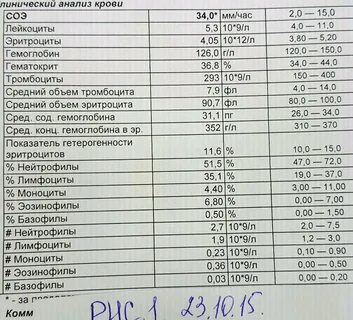 клинический анализ крови
СОЭ 34,0* мм/час 2,0 — 15,0
Лейкоциты 5,3 10*9/л 4,0 — 11,0
Эритроциты 4,05 10*12/л 3,80 — 5,20
Гемоглобин 126,0 г/л 120,0 — 150,0
Гематокрит 36,8 % 34,0 — 44,0
Тромбоциты 293 10*9/л 150 — 400
Средний объем тромбоцита 7,9 фл 4,0 — 14,0
Средний объем эритроцита 90,7 фл 80,0 — 100,0
Сред. сод. гемоглобина 31,1 пг 26,0 — 34,0
Сред. конц. гемоглобина в эр. 352 г/л 310 — 370
Показатель гетерогенности
эритроцитов 11,6 % 10,0 — 15,0
% Нейтрофилы 51,5 % 47,0 — 72,0
% Лимфоциты 35,1 % 19,0 — 37,0
% Моноциты 4,40 % 3,00 — 11,00
% Эозинофилы 6,80 % 0,00 — 7,00
% Базофилы 0,50 % 0,00 — 1,50
# Нейтрофилы 2,7 10*9/л 2,0 — 7,5
# Лимфоциты 1,9 10*9/л 1,2 — 3,0
# Моноциты 0,23 10*9/л 0,10 — 0,90
# Эозинофилы 0,36 10*9/л 0,00 — 0,50
# Базофилы 0,03 10*9/л 0,00 — 0,20
* - за
Комм 23.10.15.